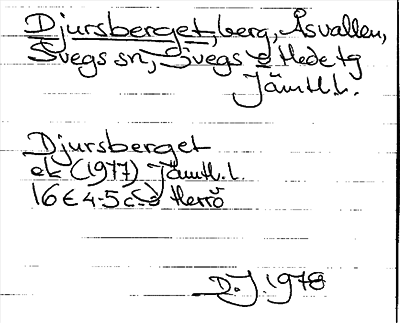 Djursberget, berg, Åsvallen,
Svegs sn, Svegs o Hede tg
Jämtl. l.
Djursberget
ek (1977) Jämtl. l.
16E 4-5 c-d Herrö
D. J. 1978